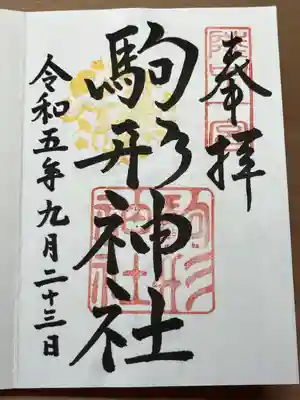 奉拝
陸中一宮
駒形神社
駒形神社
令和五年九月二十三日